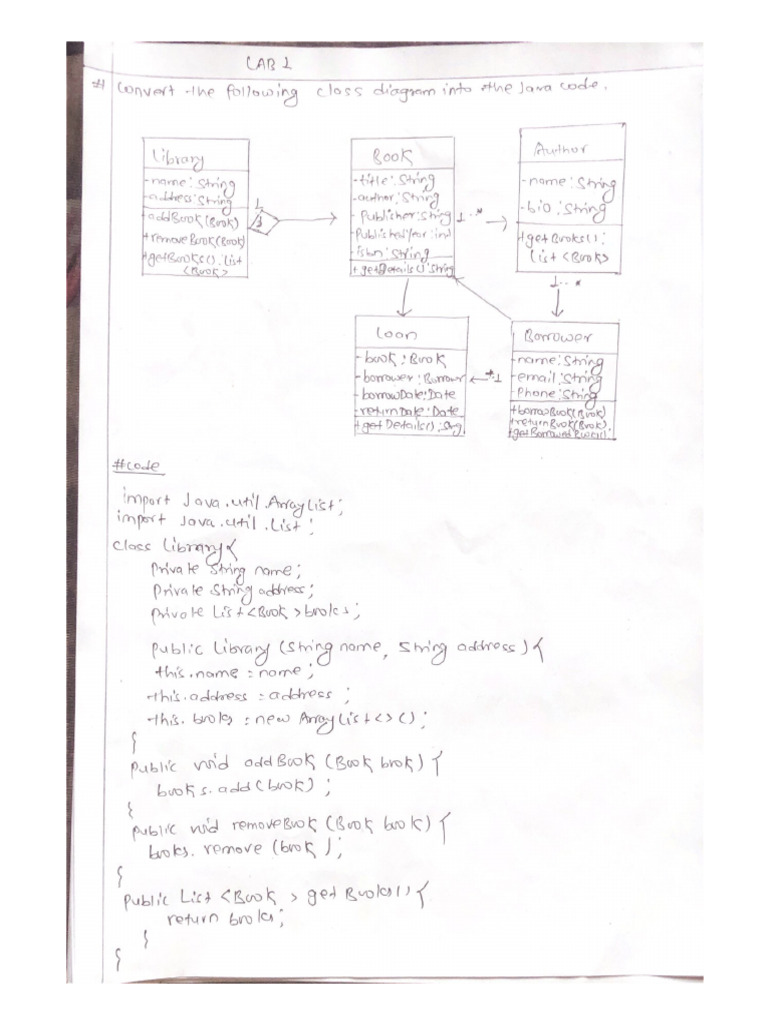 LAB 1
# Convert the following class diagram into the Java code.
Library
-name: String
-address: String
+addBook(Book)
+removeBook(Book)
+getBooks(): List
<Book>
1
Book
-title: String
-author: String
-Publisher: String
-PublishedYear: int
-isbn: String
+getDetails(): String
1..*
Author
-name: String
-bio: String
+getBooks():
List <Book>
1..*
Loan
-book: Book
-borrower: Borrower
-borrowDate: Date
-returnDate: Date
+getDetails():
*..1
Borrower
-name: String
-email: String
-Phone: String
+borrowBook(Book)
+returnBook(Book).
#code
import Java.util.ArrayList;
import Java.util.List;
class Library{
Private String name;
Private String address;
Private List<Book> books;
Public Library (String name, String address) {
this.name = name;
this.address = address;
this.books = new ArrayList<>();
}
Public void addBook (Book book) {
books.add(book);
}
Public void removeBook (Book book) {
books.remove (book);
}
Public List <Book> getBooks() {
return books;
}
}